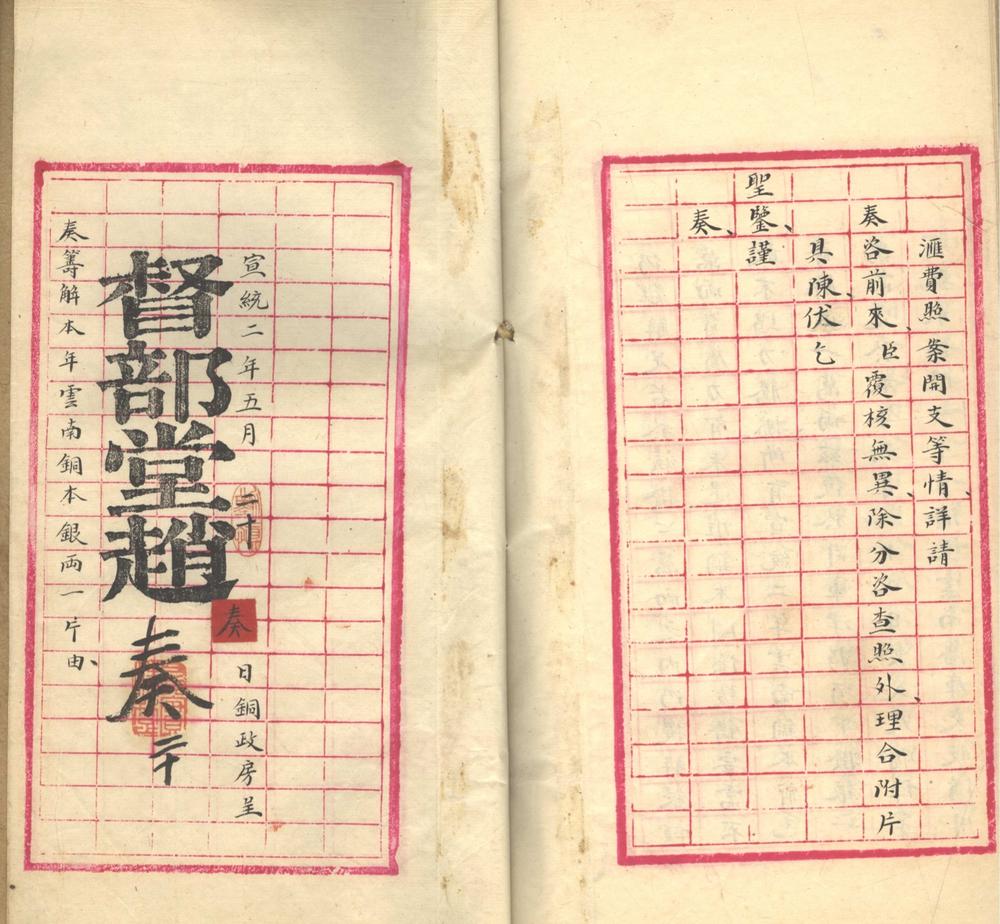 滙費照案開支等情、詳請
奏咨前來、臣覆核無異、除分咨查照外、理合附片
具陳、伏乞
聖鑒、謹
奏、
宣統二年五月二十日銅政房呈
奏
督部堂趙
奏
二十
奏籌解本年雲南銅本銀両一片由、